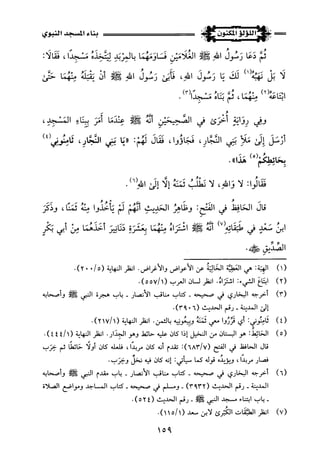 اللؤلؤ المكنون
بناء المسجد النبوي
ثُمَّ دَعَا رَسُولُ اللهِ ﷺ الغُلَامَيْنِ فَسَاوَمَهُمَا بِالمِرْبَدِ لِيَتَّخِذَهُ مَسْجِدًا، فَقَالَا:
لَا بَلْ نَهَبُهُ(١) لَكَ يَا رَسُولَ اللهِ، فَأَبَىٰ رَسُولُ اللهِ ﷺ أَنْ يَقْبَلَهُ مِنْهُمَا حَتَّىٰ
ابْتَاعَهُ(٢) مِنْهُمَا، ثُمَّ بَنَاهُ مَسْجِدًا(٣).
وفِي رِوَايَةٍ أُخْرَىٰ فِي الصَّحِيحَيْنِ أَنَّهُ ﷺ عِنْدَمَا أَمَرَ بِبِنَاءِ المَسْجِدِ،
أَرْسَلَ إِلَىٰ مَلَأِ بَنِي النَّجَّارِ، فَجَاؤُوا، فَقَالَ لَهُمْ: «يَا بَنِي النَّجَّارِ، ثَامِنُونِي(٤)
بِحَائِطِكُمْ(٥) هَذَا».
فَقَالُوا: لَا وَاللهِ، لَا نَطْلُبُ ثَمَنَهُ إِلَّا إِلَى اللهِ(٦).
قَالَ الحَافِظُ فِي الفَتْحِ: وظَاهِرُ الحَدِيثِ أَنَّهُمْ لَمْ يَأْخُذُوا مِنْهُ ثَمَنًا، وذَكَرَ
ابنُ سَعْدٍ فِي طَبَقَاتِهِ(٧) أَنَّهُ ﷺ اشْتَرَاهُ مِنْهُمَا بِعَشَرَةِ دَنَانِيرَ أَخَذَهُمَا مِنْ أَبِي بَكْرٍ
الصِّدِّيقِ ﷺ.
(١) الهِبَة: هي العَطِيَّة الخَالِيَةُ عن الأعواض والأغراض. انظر النهاية (٢٠٠/٥).
(٢) ابْتَاعَ الشيءَ: اشتَرَاهُ. انظر لسان العرب (٥٥٧/١).
(٣) أخرجه البخاري في صحيحه ـ كتاب مناقب الأنصار ـ باب هجرة النبي ﷺ وأصحابه
إلى المدينة ـ رقم الحديث (٣٩٠٦).
(٤) ثَامِنُونِي: أي قَرِّرُوا معي ثَمَنَهُ وبِيعُونِيه بالثمن. انظر النهاية (٢١٧/١).
(٥) الحَائِطُ: هو البستان من النخيل إذا كان عليه حائط وهو الجِدَار. انظر النهاية (٤٤٤/١).
قال الحافظ في الفتح (٦٨٣/٧): تقدم أنه كان مِربدًا، فلعله كان أولًا حائطًا ثم خَرِب
فصار مِربدًا، ويؤيِّده قوله كما سيأتي: إنه كان فيه نخلٌ وخِرَب.
(٦) أخرجه البخاري في صحيحه ـ كتاب مناقب الأنصار ـ باب مقدم النبي ﷺ وأصحابه
المدينة ـ رقم الحديث (٣٩٣٢) ـ ومسلم في صحيحه ـ كتاب المساجد ومواضع الصلاة
ـ باب ابتناء مسجد النبي ﷺ ـ رقم الحديث (٥٢٤).
(٧) انظر الطَّبَقَات الكُبْرَىٰ لابن سعد (١١٥/١).
١٥٩